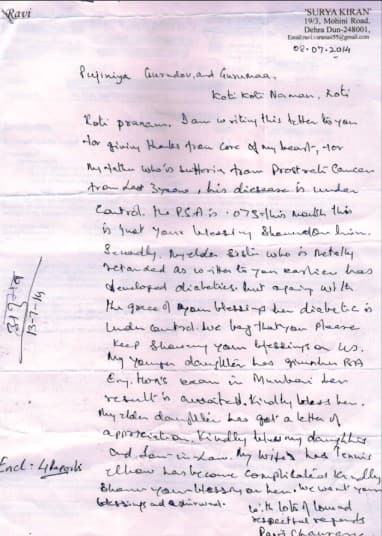 Ravi
'SURYA KIRAN'
19/3, Mohini Road,
Dehra Dun-248001,
08-07-2014
Pujiniya Gurudev, and Gurumaa,
Koti Koti Naman, Koti
Koti pranam. I am writing this letter to you
for giving thanks from core of my heart, for
My father who is suffering from Prostrate Cancer
from last 3 years, his disease is under
Control. the P.S.A is .075 this month this
is just your blessing on him.
Secondly, My elder Sister who is
retarded as written to you earlier has
developed diabetics. but again with
the grace of your blessings her diabetic is
under control. We beg that you Please
keep your blessings on us.
My younger daughter has given her
Eng. Hon's exam in Mumbai her
result is awaited. Kindly bless her.
My elder daughter has got a letter of
appreciation. Kindly bless my daughter
and Son-in-Law. My wife's has Tennis
Elbow has become complicated kindly
your blessing on her. We want your
blessings and
With lots of love and
respectful regards
Ravi
13-7-14
Encl: 4 Reports